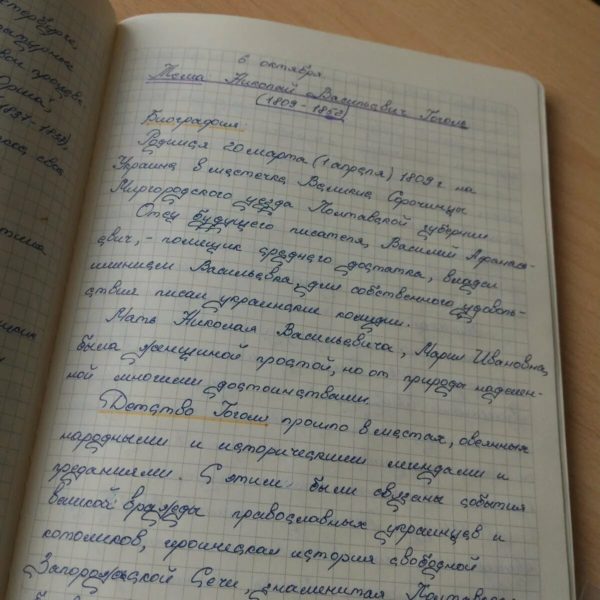 6 октября.
Тема Николай Васильевич Гоголь
(1809 - 1852)
Биография:
Родился 20 марта (1 апреля) 1809 г на
Украине в местечке Великие Сорочинцы
Миргородского уезда Полтавской губернии.
Отец будущего писателя, Василий Афанась-
евич, - помещик среднего достатка, владел
имением Васильевка, для собственного удоволь-
ствия писал украинские комедии.
Мать Николая Васильевича, Мария Ивановна,
была женщиной простой, но от природы наделен-
ной многими достоинствами.
Детство Гоголя прошло в местах, овеянных
народными и историческими легендами и
преданиями. С этим были связаны события
великой вражды православных украинцев и
католиков, героическая история свободной
Запорожской Сечи, знаменитая
(1837-1838)